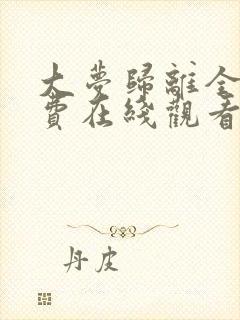 大夢歸離全
費在綫觀看
丹皮